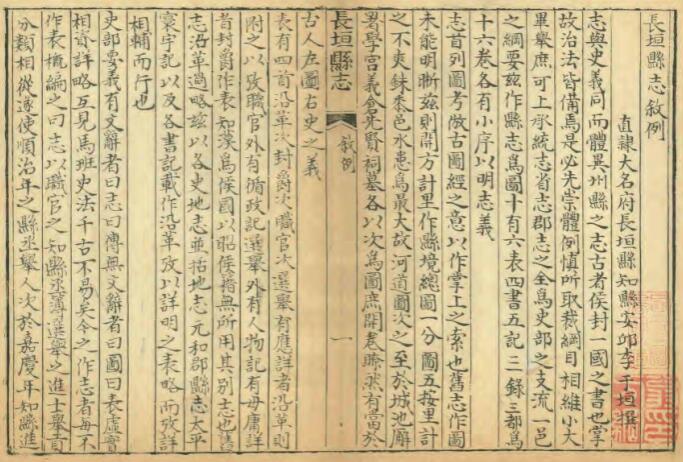 長垣縣志敘例
直隸大名府長垣縣知縣安邱李于垣撰
志與史義同而體異州縣之志古者侯封一國之書也掌
故治法皆備焉是必先崇體例慎所取裁綱目相維小大
畢舉庶可上承統志省志郡志之全爲史部之支流一邑
之綱要茲作縣志爲圖十有六表四書五記三錄三都爲
十六卷各有小序以明志義
志首列圖考倣古圖經之意以作掌上之索也舊志作圖
未能明晰茲則開方計里作縣境總圖一分圖五按里計
之不爽銖黍邑水患爲最大故河道圖次之至於城池廨
署學宮義倉先賢祠墓各以次爲圖庶開卷瞭然有當於
長垣縣志
敘例
一
古人左圖右史之義
表有四首沿革次封爵次職官次選舉有應詳者沿革則
附之以攷職官外有循政記選舉外有人物記有毋庸詳
者封爵作表知漢爲侯國以昭侯籓無所用其別志也舊
志沿革過略茲以各史地志並括地志元和郡縣志太平
寰宇記以及各書記載作沿革攷以詳明之表略而攷詳
相輔而行也
史部要義有文辭者曰志曰傳無文辭者曰圖曰表虛實
相資詳略互見馬班史法千古不易矣今之作志者毋不
作表概編之曰志以職官之知縣丞簿選舉之進士舉貢
分類相從遂使順治年之縣丞舉人次於嘉慶年知縣進